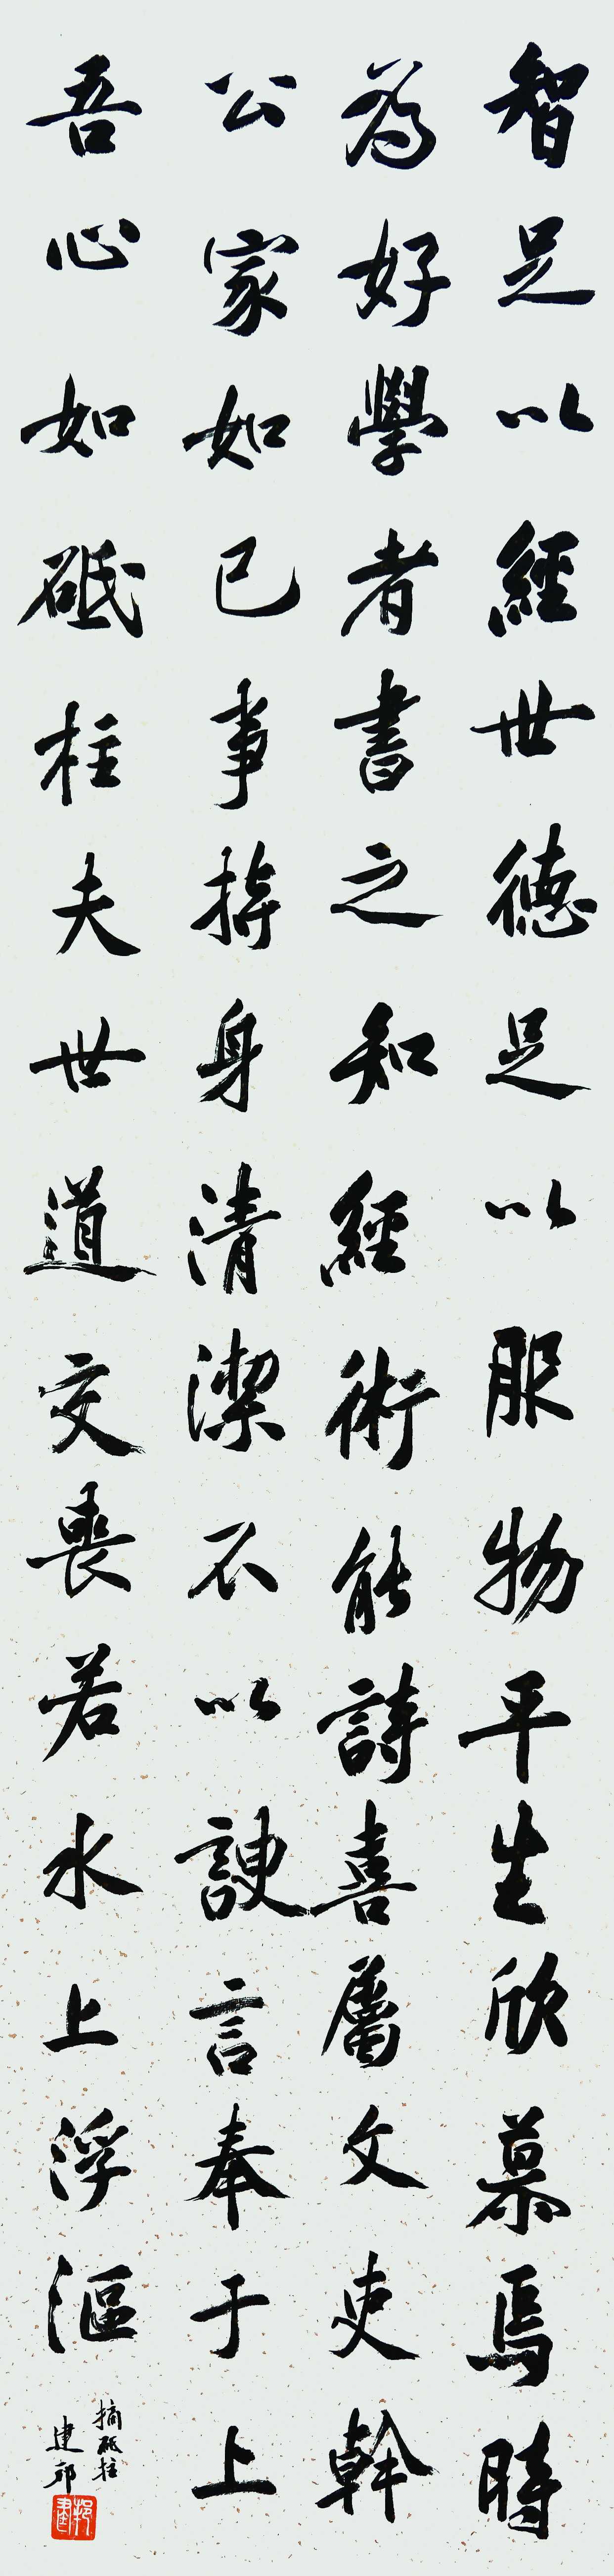 智足以經世德足以服物平生欣慕焉時
為好學者書之知經術能詩喜屬文吏幹
公家如己事持身清潔不以諛言奉于上
吾心如砥柱夫世道交喪若水上浮漚
摘砥柱
建邦